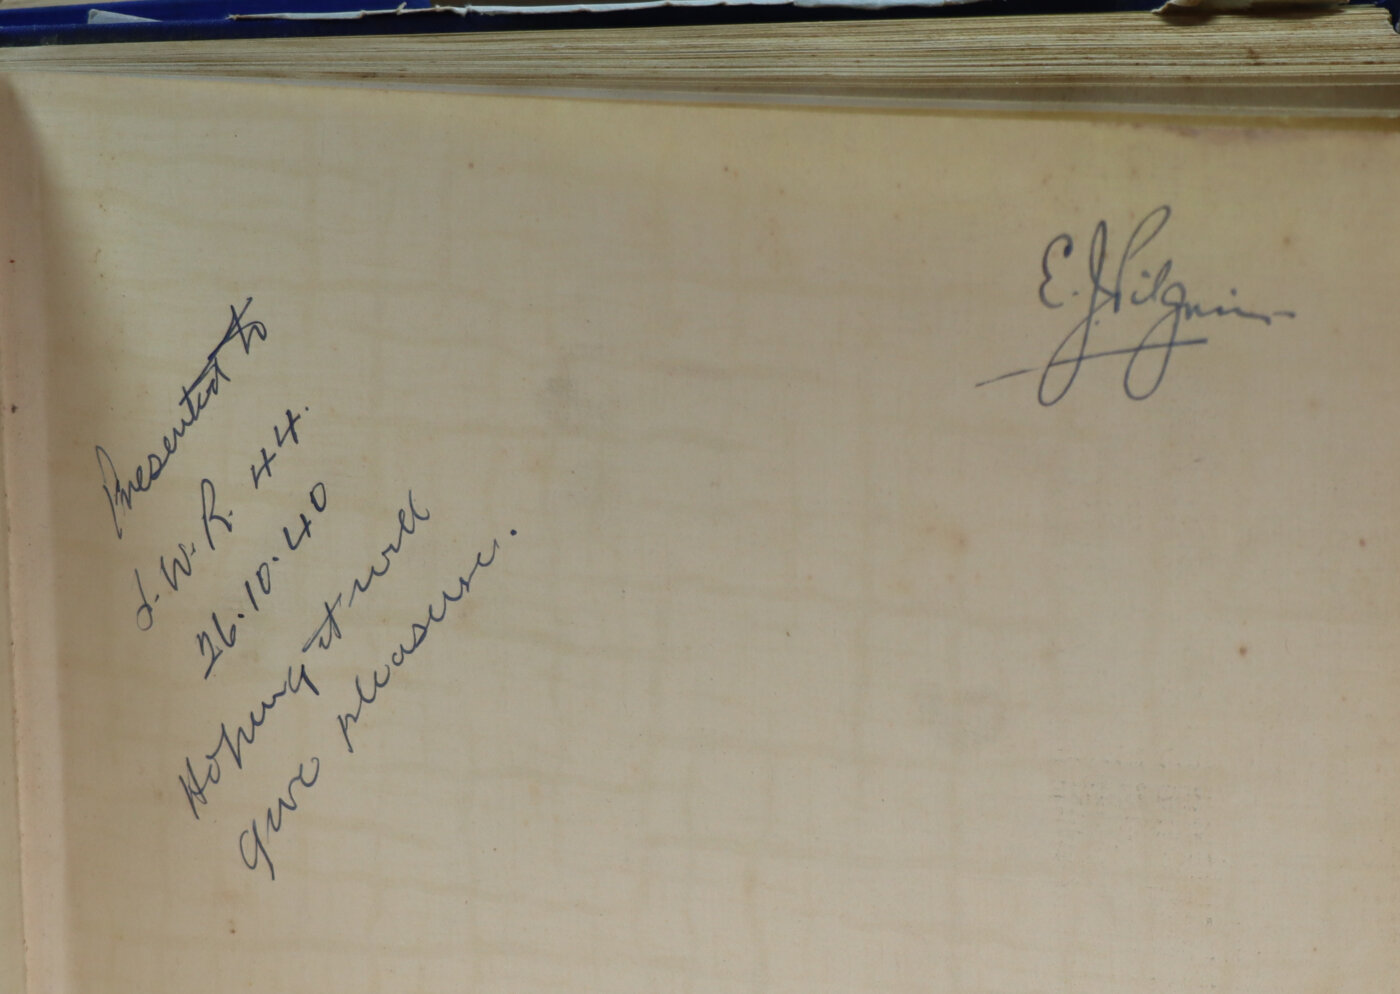 Presented to
J. W. R. 44.
26.10.40
Hoping it will
give pleasure.
E. J. Pilgrim